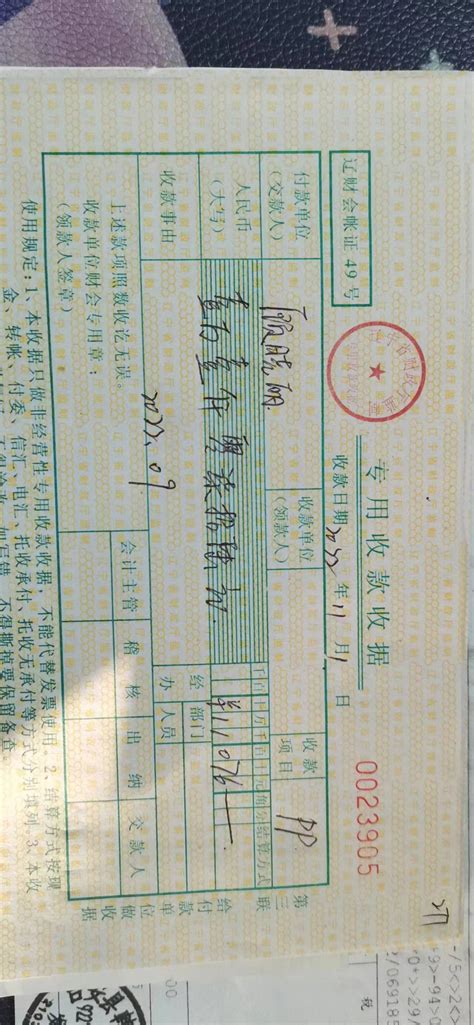 专用收款收据
0023905
辽财会帐证49号
收款日期2022年11月1日
付款单位
(交款人)
顾晓丽
收款单位
(领款人)
收款
项目
人民币
(大写)
千百十万千百十元角分
结算方式
¥111076
收款事由
2022.09
经办
部门
人员
上述款项照数收讫无误。
收款单位财会专用章:
(领款人签章)
会计主管
稽核
出纳
交款人
第三联
给付款单位做收据
使用规定:1、本收据只做非经营性专用收款收据,不能代替发票使用。2、结算方式按现
金、转帐、付委、信汇、电汇、托收承付、托收无承付等方式分别填列。3、本收